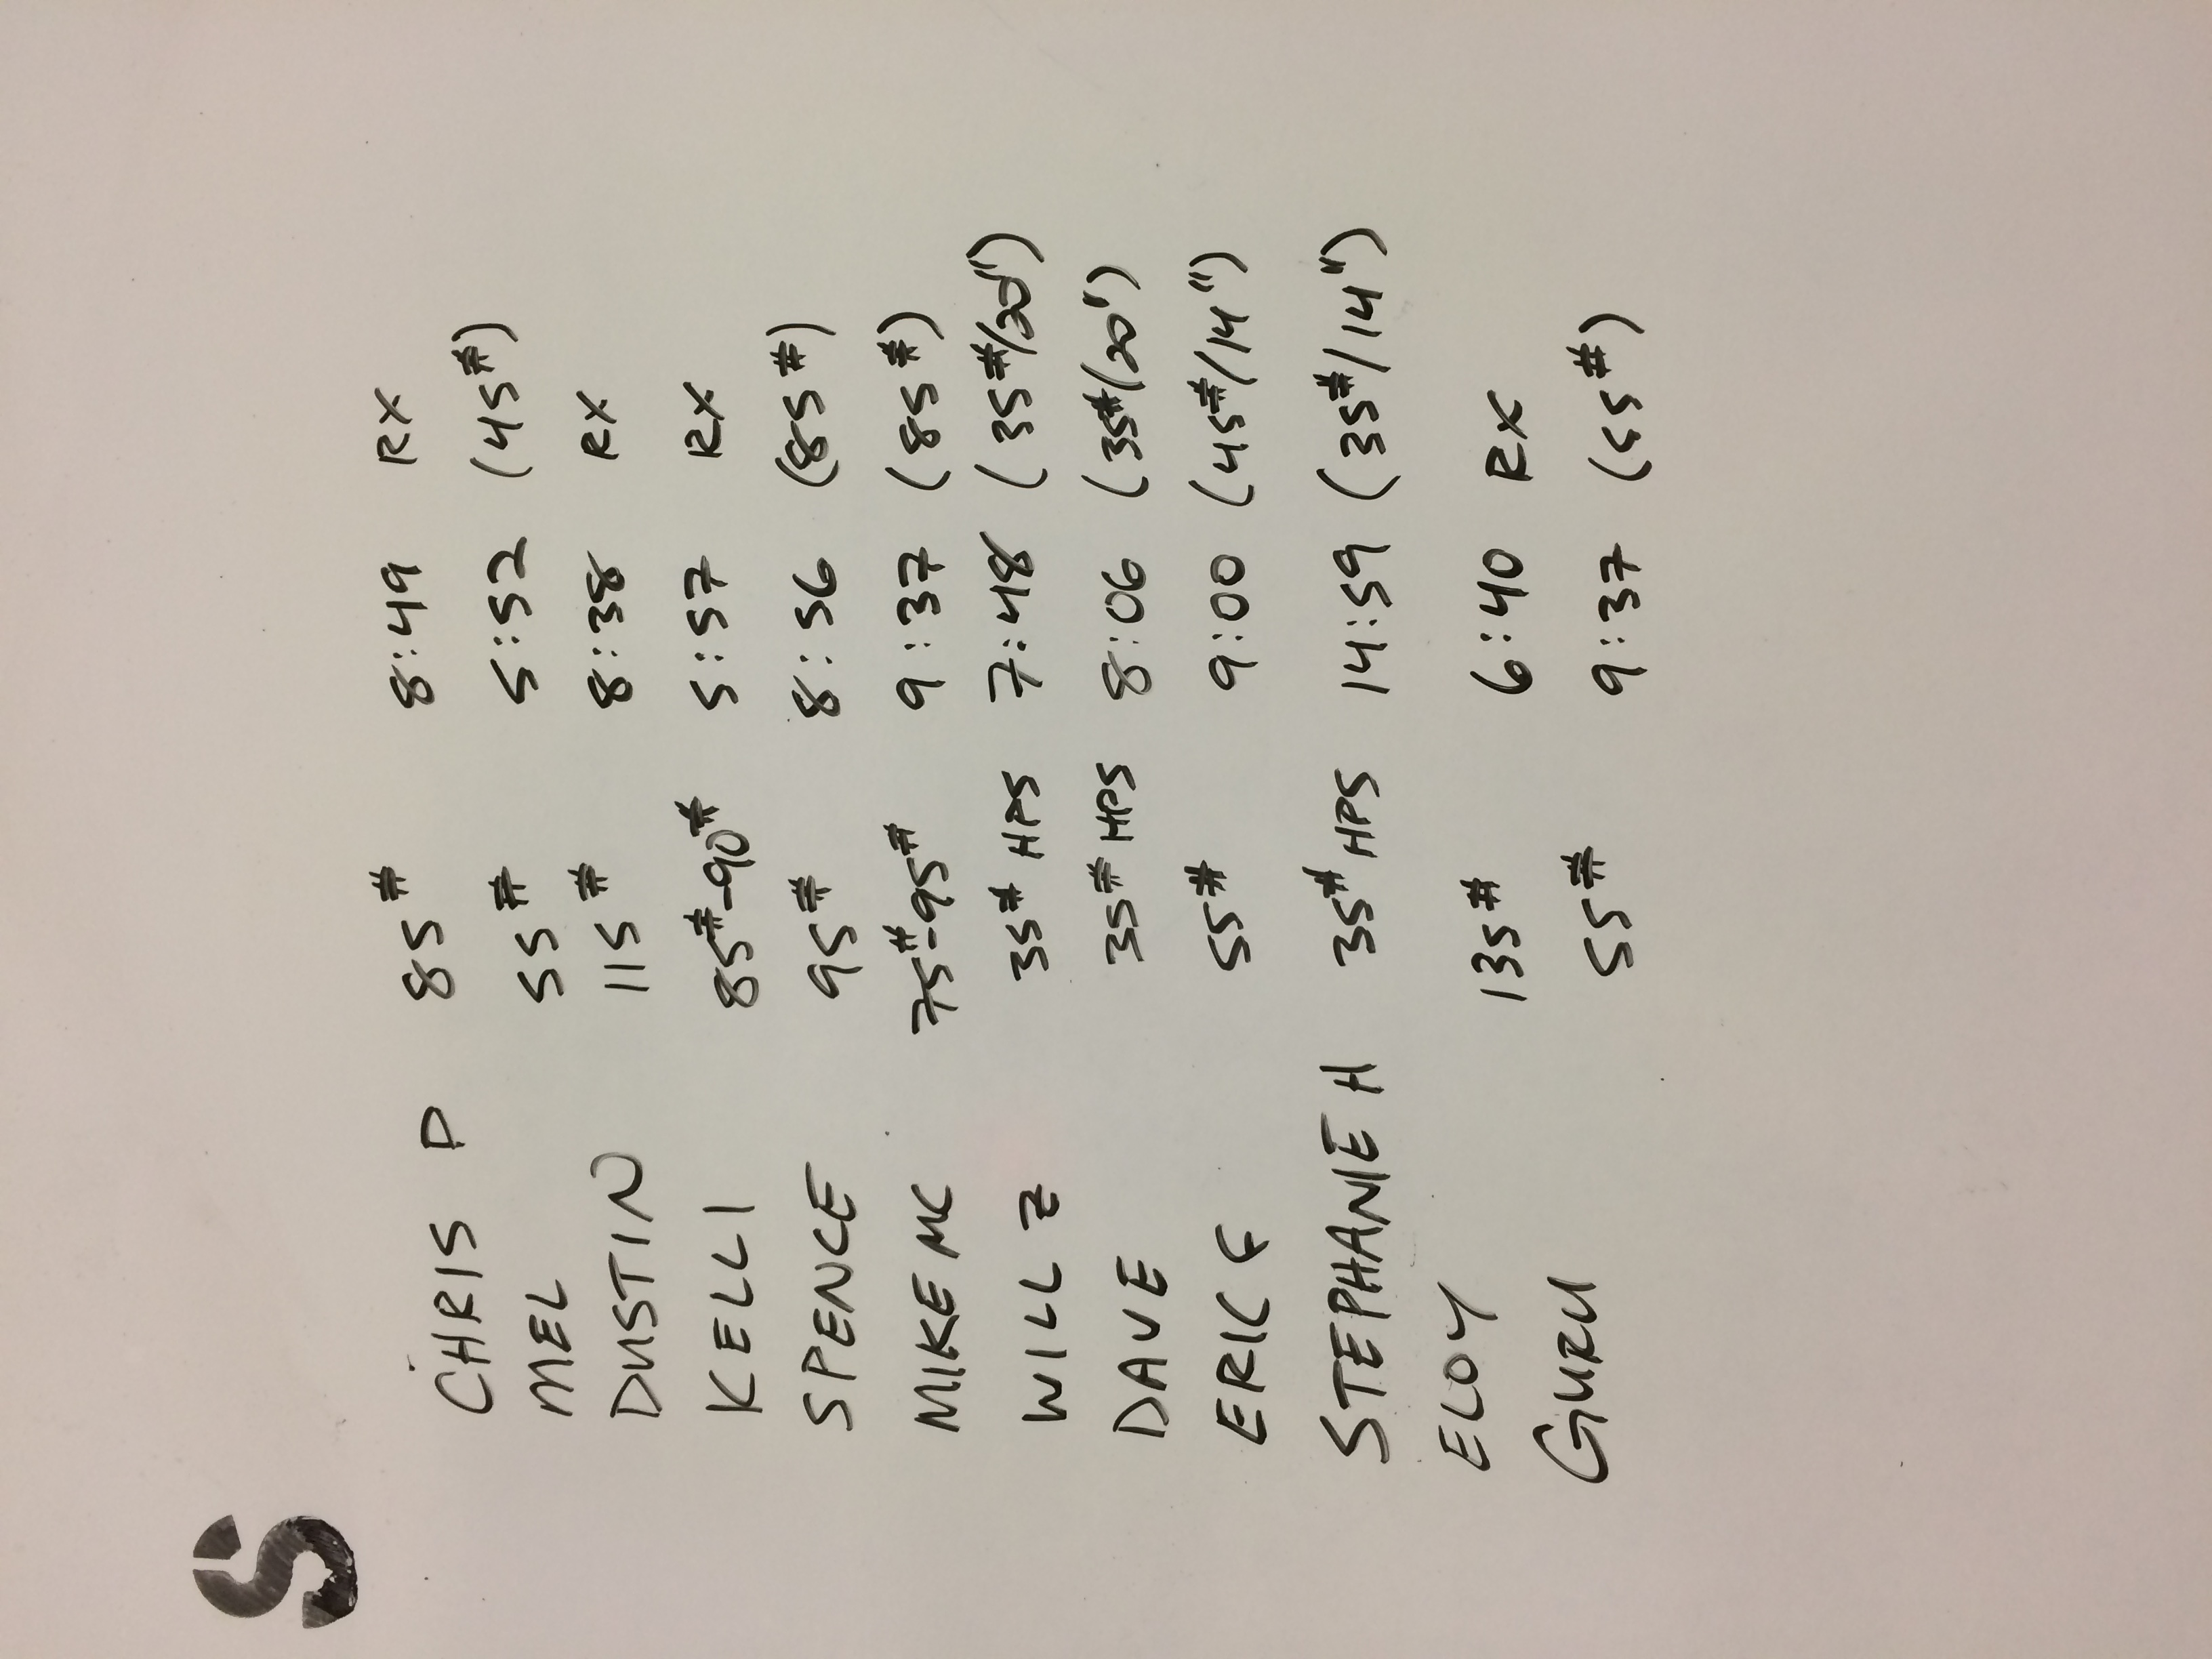 S
CHRIS D 85# 8:49 RX
MEL 55# 5:52 (45#)
DUSTIN 115# 8:38 RX
KELLI 85#-90# 5:57 RX
SPENCE 95# 8:56 (85#)
MIKE MC 75#-95# 9:37 (85#)
WILL Z 35# HPS 7:48 (35#/20")
DAVE 35# HPS 8:06 (35#/20")
ERIC 55# 9:00 (45#/14")
STEPHANIE H 35# HPS 14:59 (35#/14")
ELOY 135# 6:40 RX
GURU 55# 9:37